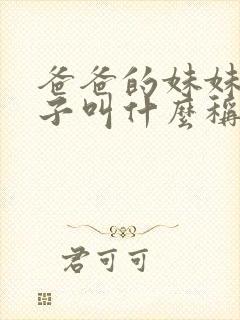 爸爸的妹妹
子叫什麼稱
君可可